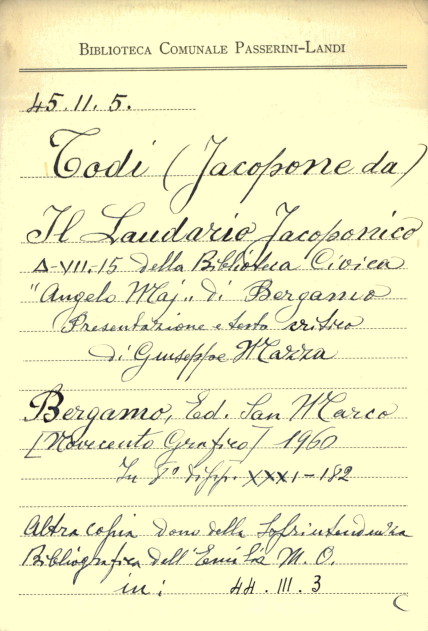 BIBLIOTECA COMUNALE PASSERINI-LANDI
45. II. 5.
Todi (Jacopone da)
Il Laudario Jacoponico
Δ-VII-15 della Biblioteca Civica
"Angelo Maj„ di Bergamo
Presentazione e testo critico
di Giuseppe Mazza
Bergamo, Ed. San Marco
[Novecento Grafico] 1960
In 8° di pp. XXXI-182
Altra copia dono della Soprintendenza
Bibliografica dell'Emilia M. O.
in: 44. III. 3